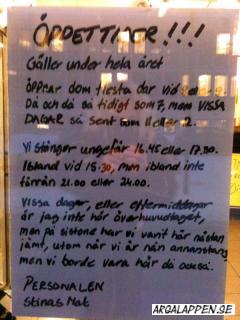 ÖPPETTIDER!!!
Gäller under hela året
Öppnar dom flesta dar vid 8 eller 9.
Då och då så tidigt som 7, men VISSA
DAGAR så sent som 11 eller 12.
Vi stänger ungefär 16.45 eller 17.30.
Ibland vid 15.30, men ibland inte
förrän 21.00 eller 24.00.
Vissa dagar, eller eftermiddagar
är jag inte här överhuvudtaget,
men på sistone har vi varit här nästan
jämt, utom när vi är nån annanstans
men vi borde vara här då också.
PERSONALEN
Stinas Mat
ARGALAPPEN.SE